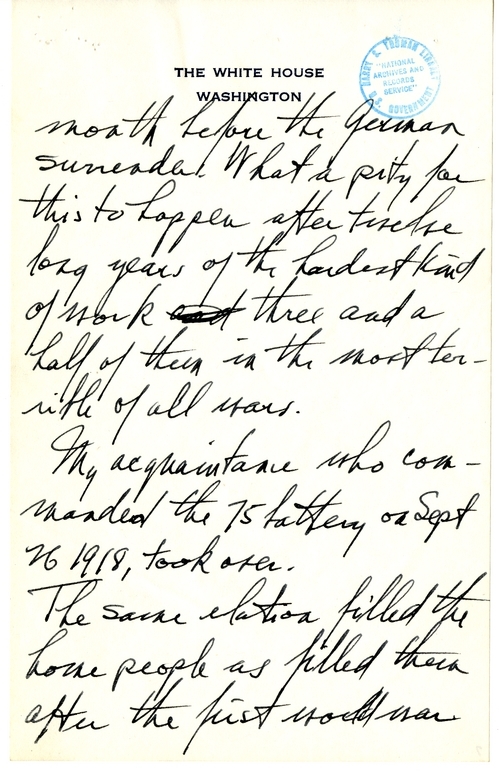 THE WHITE HOUSE
WASHINGTON
HARRY S. TRUMAN LIBRARY
"NATIONAL
ARCHIVES AND
RECORDS
SERVICE"
U.S. GOVERNMENT
month before the German
surrender. What a pity for
this to happen after twelve
long years of the hardest kind
of work and three and a
half of them in the most ter-
rible of all wars.
My acquaintance who com-
manded the 75 battery on Sept
26 1918, took over.
The same elation filled the
home people as filled them
after the first world war